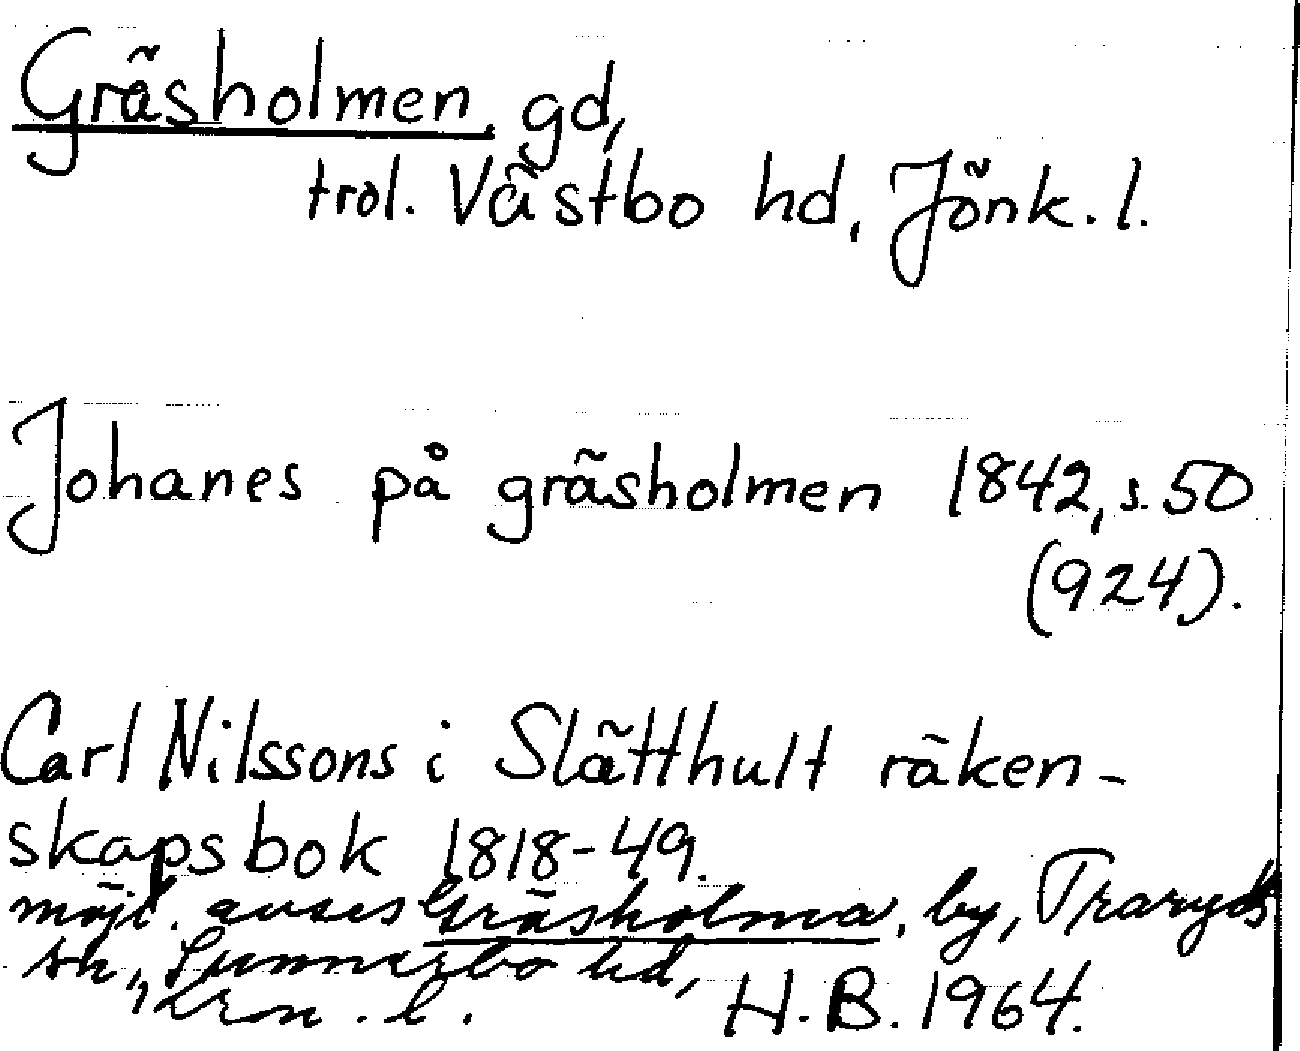 Gräsholmen, gd,
trol. Västbo hd, Jönk. l.
Johanes på gräsholmen 1842, s. 50
(924).
Carl Nilssons i Slätthult räken-
skapsbok 1818-49.
möjl. avses Gräsholma, by, Traryds
sn, Sunnerbo hd,
Kron. l.
H. B. 1964.